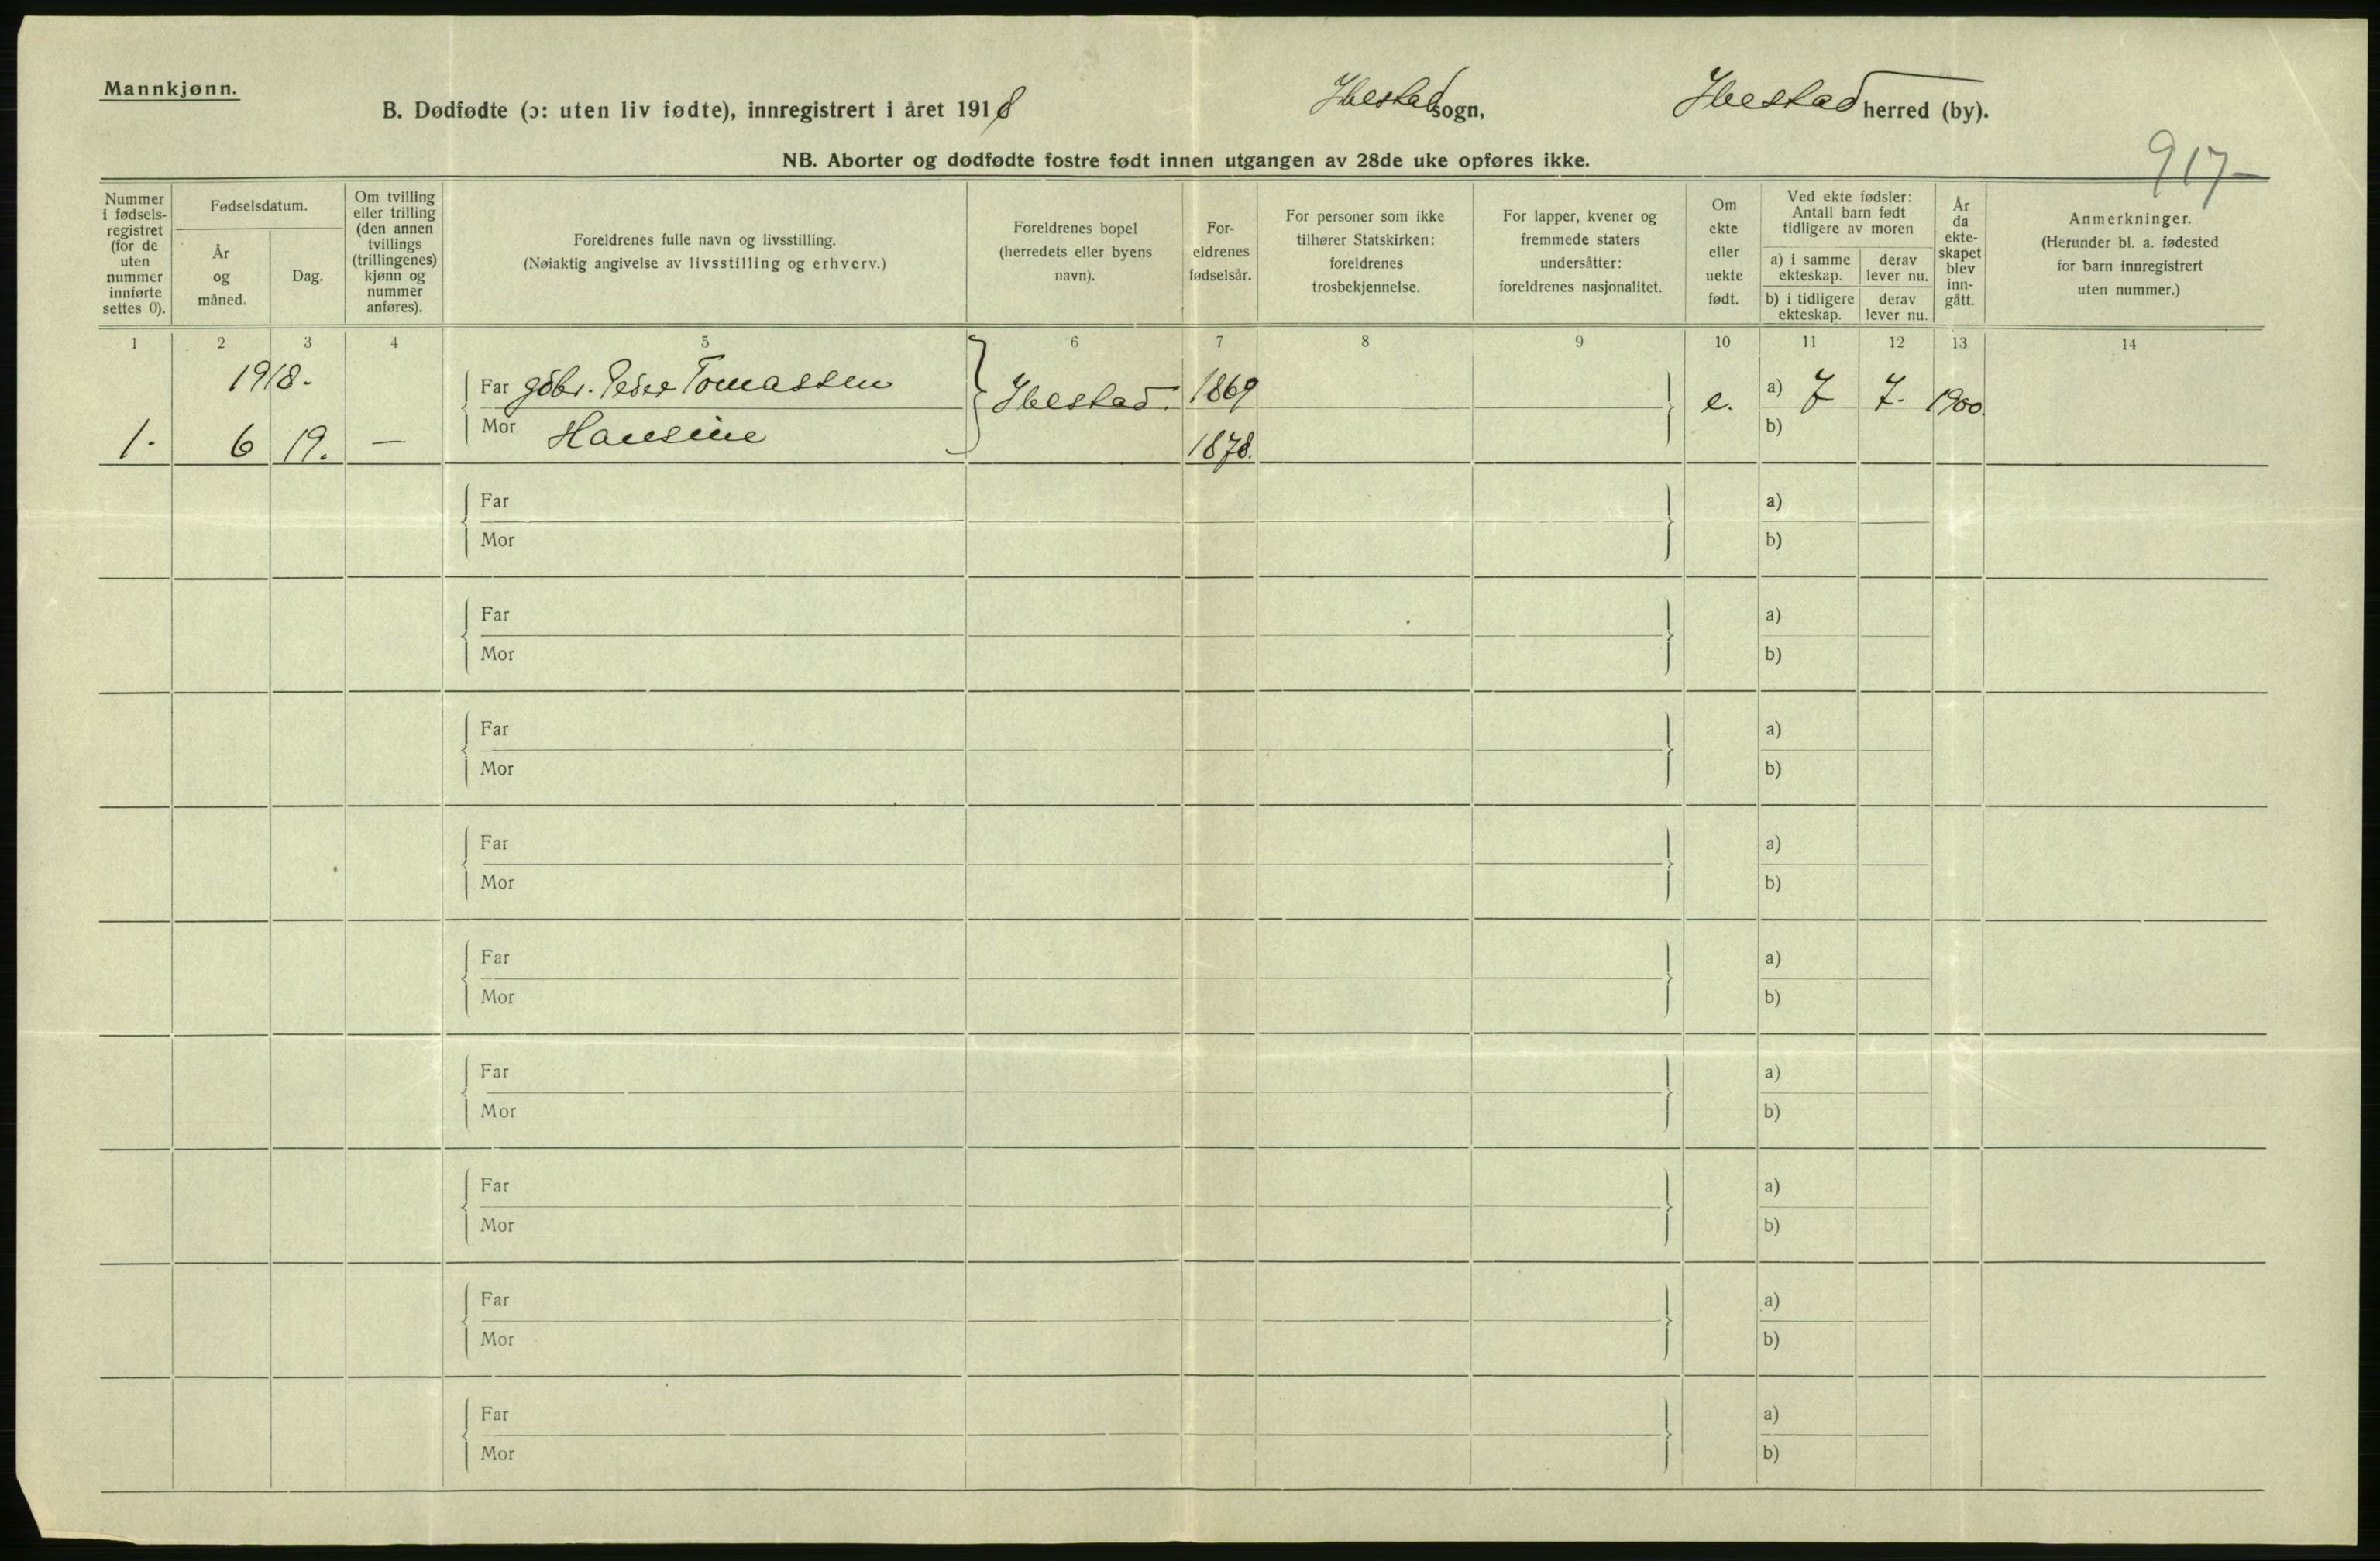 Mannkjønn.
B. Dødfødte (ɔ: uten liv fødte), innregistrert i året 1918 Ibestad sogn, Ibestad herred (by).
NB. Aborter og dødfødte fostre født innen utgangen av 28de uke opføres ikke.
917-
Nummer i fødsels-registret (for de uten nummer innførte settes 0).
Fødselsdatum.
År og måned.
Dag.
Om tvilling eller trilling (den annen tvillings (trillingenes) kjønn og nummer anføres).
Foreldrenes fulle navn og livsstilling.
(Nøiaktig angivelse av livsstilling og erhverv.)
Foreldrenes bopel
(herredets eller byens
navn).
For-
eldrenes
fødselsår.
For personer som ikke
tilhører Statskirken:
foreldrenes
trosbekjennelse.
For lapper, kvener og
fremmede staters
undersåtter:
foreldrenes nasjonalitet.
Om
ekte
eller
uekte
født.
Ved ekte fødsler:
Antall barn født
tidligere av moren
a) i samme ekteskap.
derav lever nu.
b) i tidligere ekteskap.
derav lever nu.
År da ekte-skapet blev inn-gått.
Anmerkninger.
(Herunder bl. a. fødested
for barn innregistrert
uten nummer.)
1 2 3 4 5 6 7 8 9 10 11 12 13 14
1918.
Far gdbr. Peder Tomassen Ibestad. 1869 e. a) 7 7. 1900.
1. 6 19. — Mor Hansine 1878. b)
Far a)
Mor b)
Far a)
Mor b)
Far a)
Mor b)
Far a)
Mor b)
Far a)
Mor b)
Far a)
Mor b)
Far a)
Mor b)
Far a)
Mor b)
Far a)
Mor b)